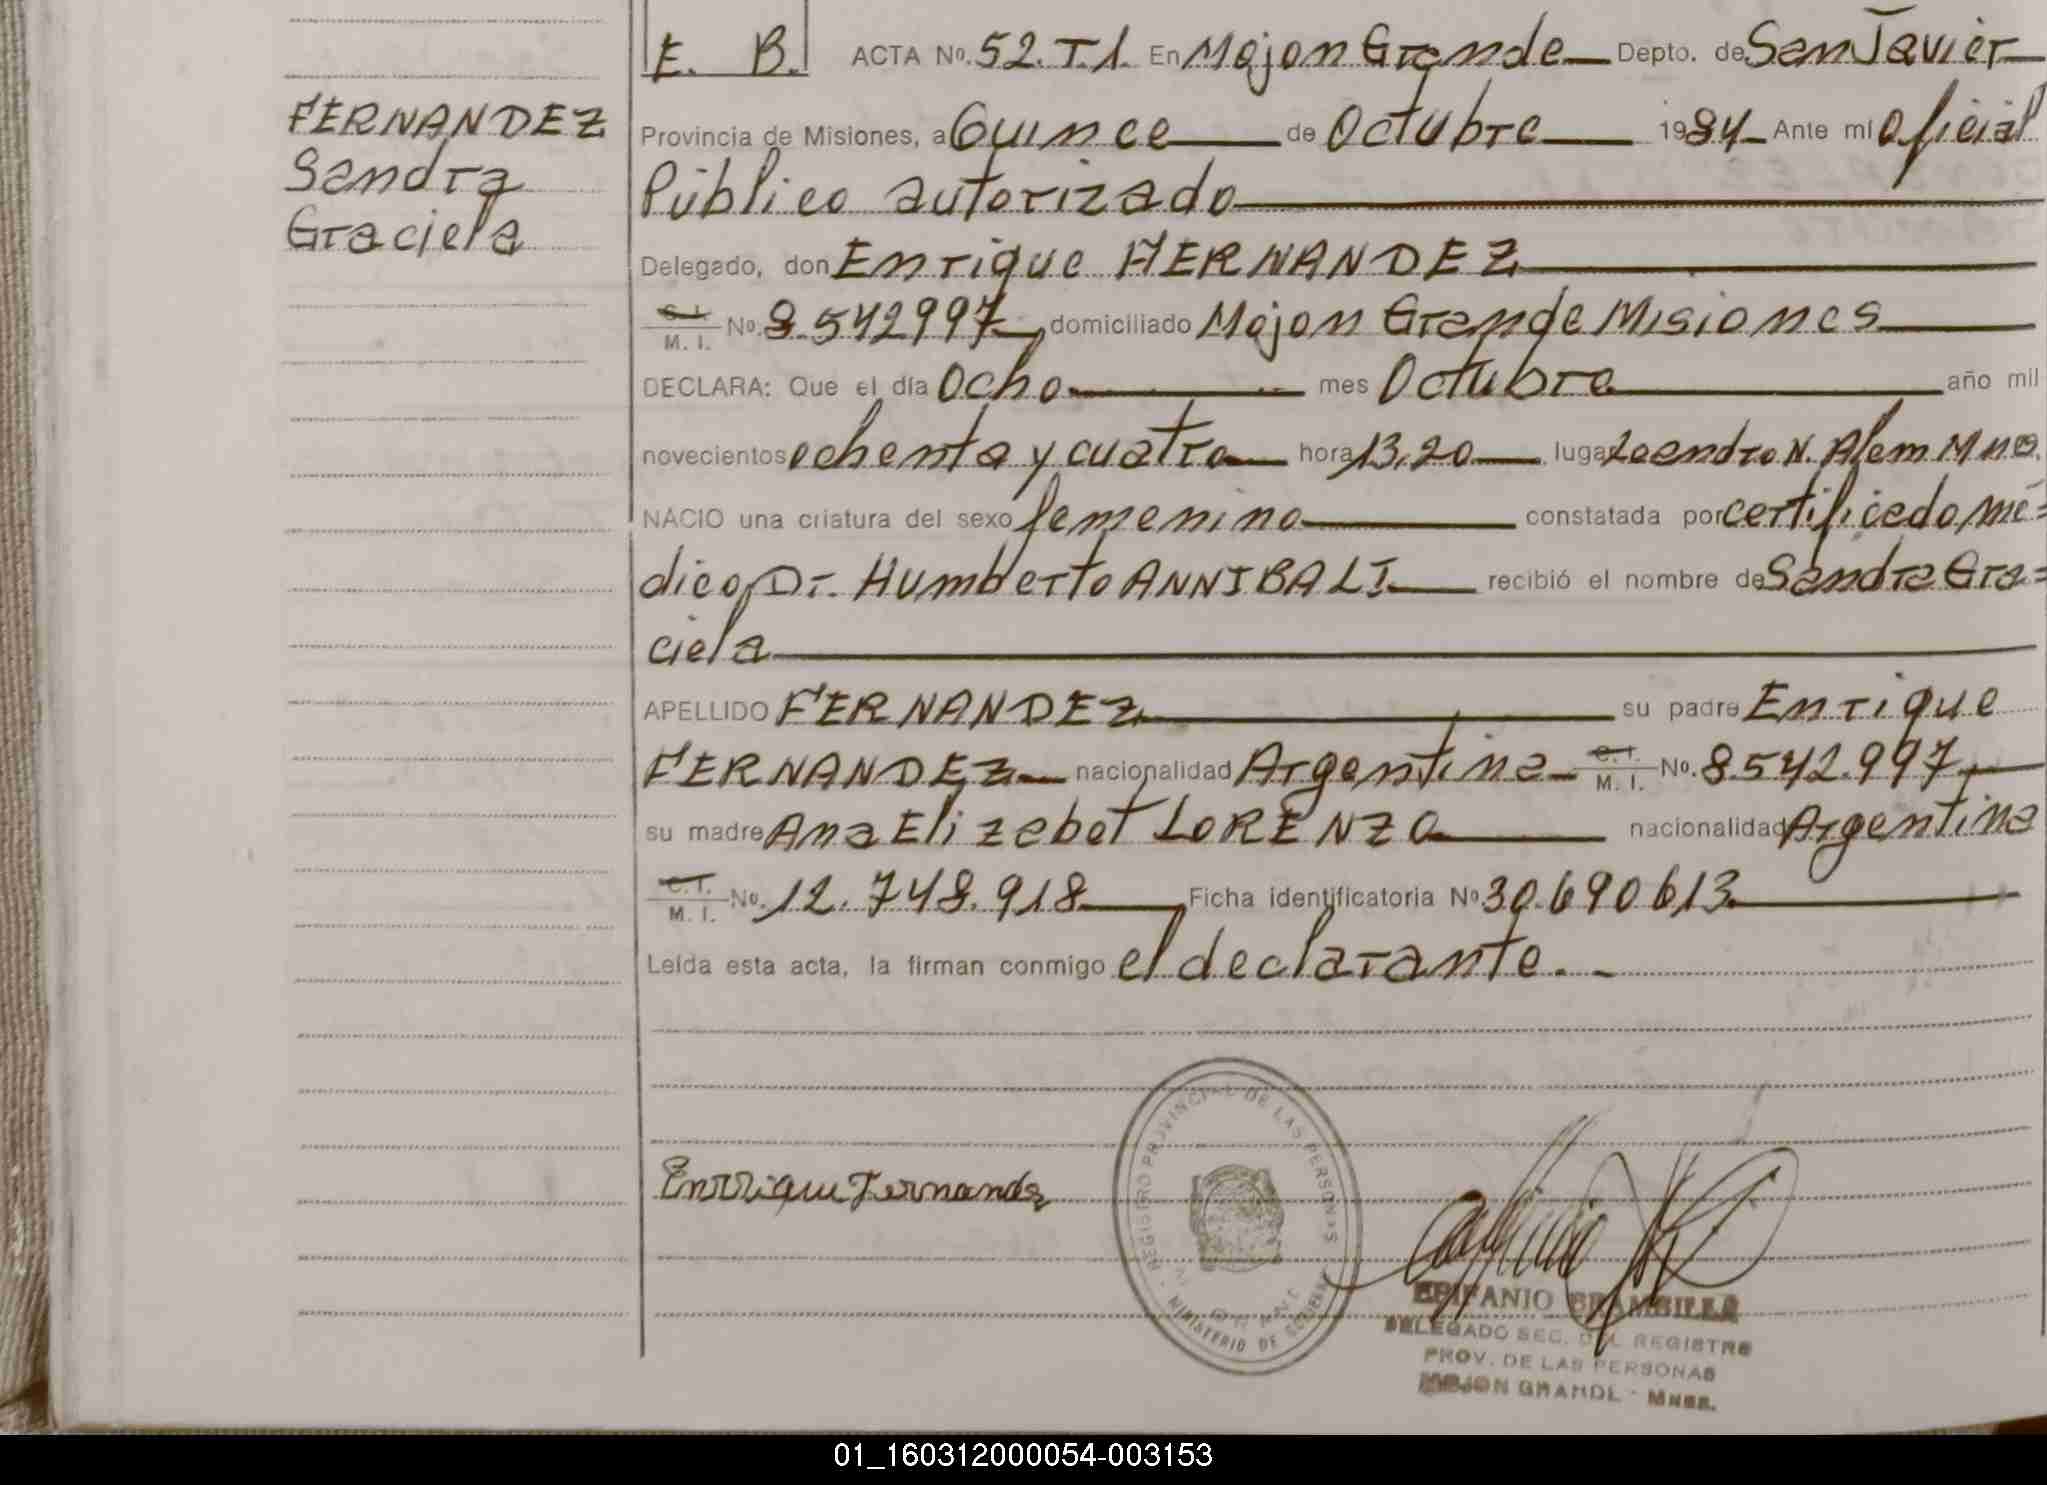 E. B. ACTA Nº. 52. T.1. En Mojon Grande Depto. de San Javier
FERNANDEZ
Sandra
Graciela
Provincia de Misiones, a Quince de Octubre 1984 Ante mí Oficial
Público autorizado
Delegado, don Enrique FERNANDEZ
C. I.
M. I. Nº. 8.542997, domiciliado Mojon Grande Misiones
DECLARA: Que el día Ocho mes Octubre año mil
novecientos ochenta y cuatro hora 13,20 lugar Leandro N. Alem Mnes.
NACIO una criatura del sexo femenino constatada por certificado mé=
dico, Dr. Humberto ANNIBALI recibió el nombre de Sandra Gra=
ciela
APELLIDO FERNANDEZ su padre Enrique
FERNANDEZ nacionalidad Argentina C. I.
M. I. Nº. 8.542.997,
su madre Ana Elizabet LORENZO nacionalidad Argentina
C. I.
M. I. Nº. 12.748.918, Ficha identificatoria Nº 30.690613
Leída esta acta, la firman conmigo el declarante.
Enrrique Fernandz
REGISTRO PROVINCIAL DE LAS PERSONAS
MINISTERIO DE GOBIERNO
EPIFANIO BRAMBILLA
DELEGADO SEC. DEL REGISTRO
PROV. DE LAS PERSONAS
MOJON GRANDE - MNES.
01_160312000054-003153